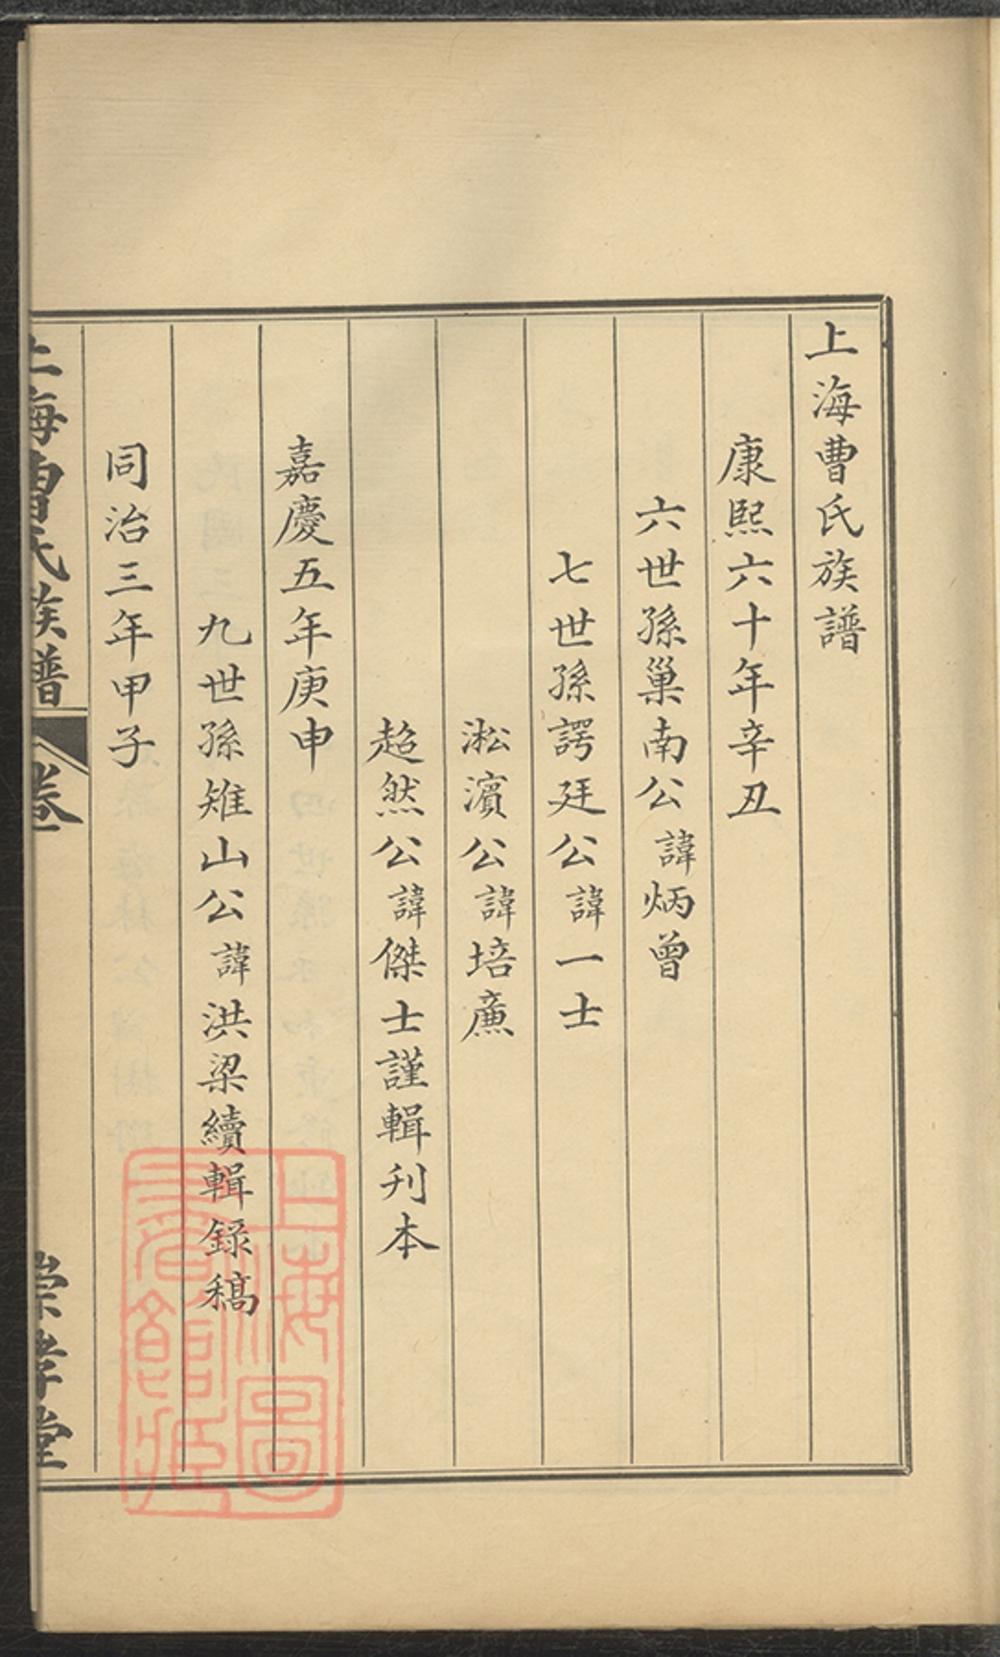 上海曹氏族譜
康熙六十年辛丑
六世孫巢南公諱炳曾
七世孫諤廷公諱一士
淞濱公諱培廉
超然公諱傑士謹輯刋本
嘉慶五年庚申
九世孫雉山公諱洪梁續輯錄稿
同治三年甲子
上海曹氏族譜
卷一
崇孝堂
上海圖書館藏